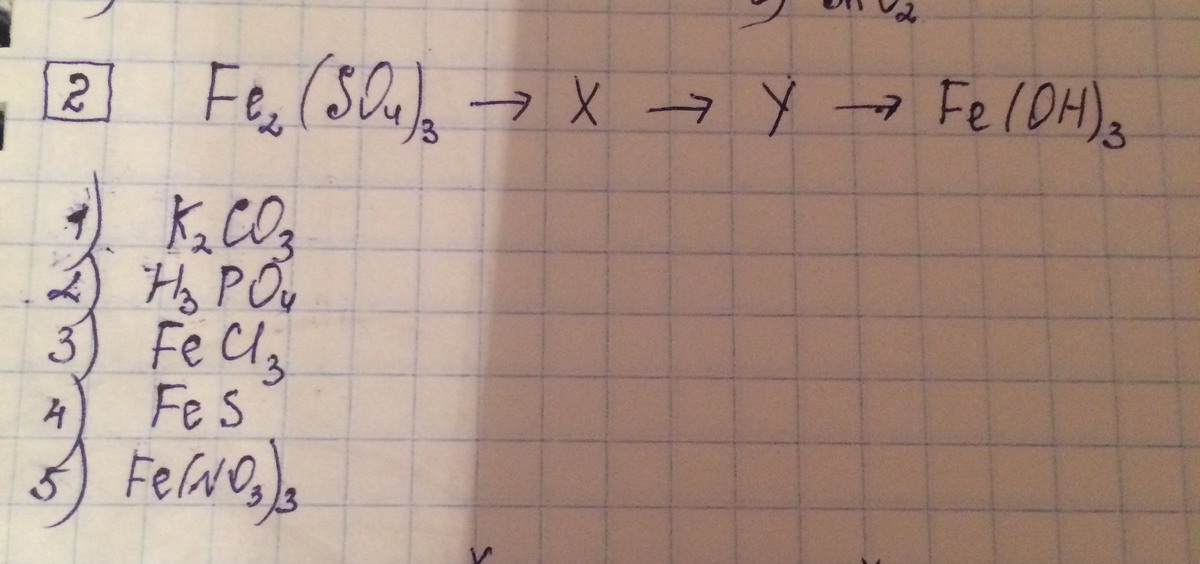 2 Fe₂(SO₄)₃ → X → Y → Fe(OH)₃
1) K₂CO₃
2) H₃PO₄
3) FeCl₃
4) FeS
5) Fe(NO₃)₃